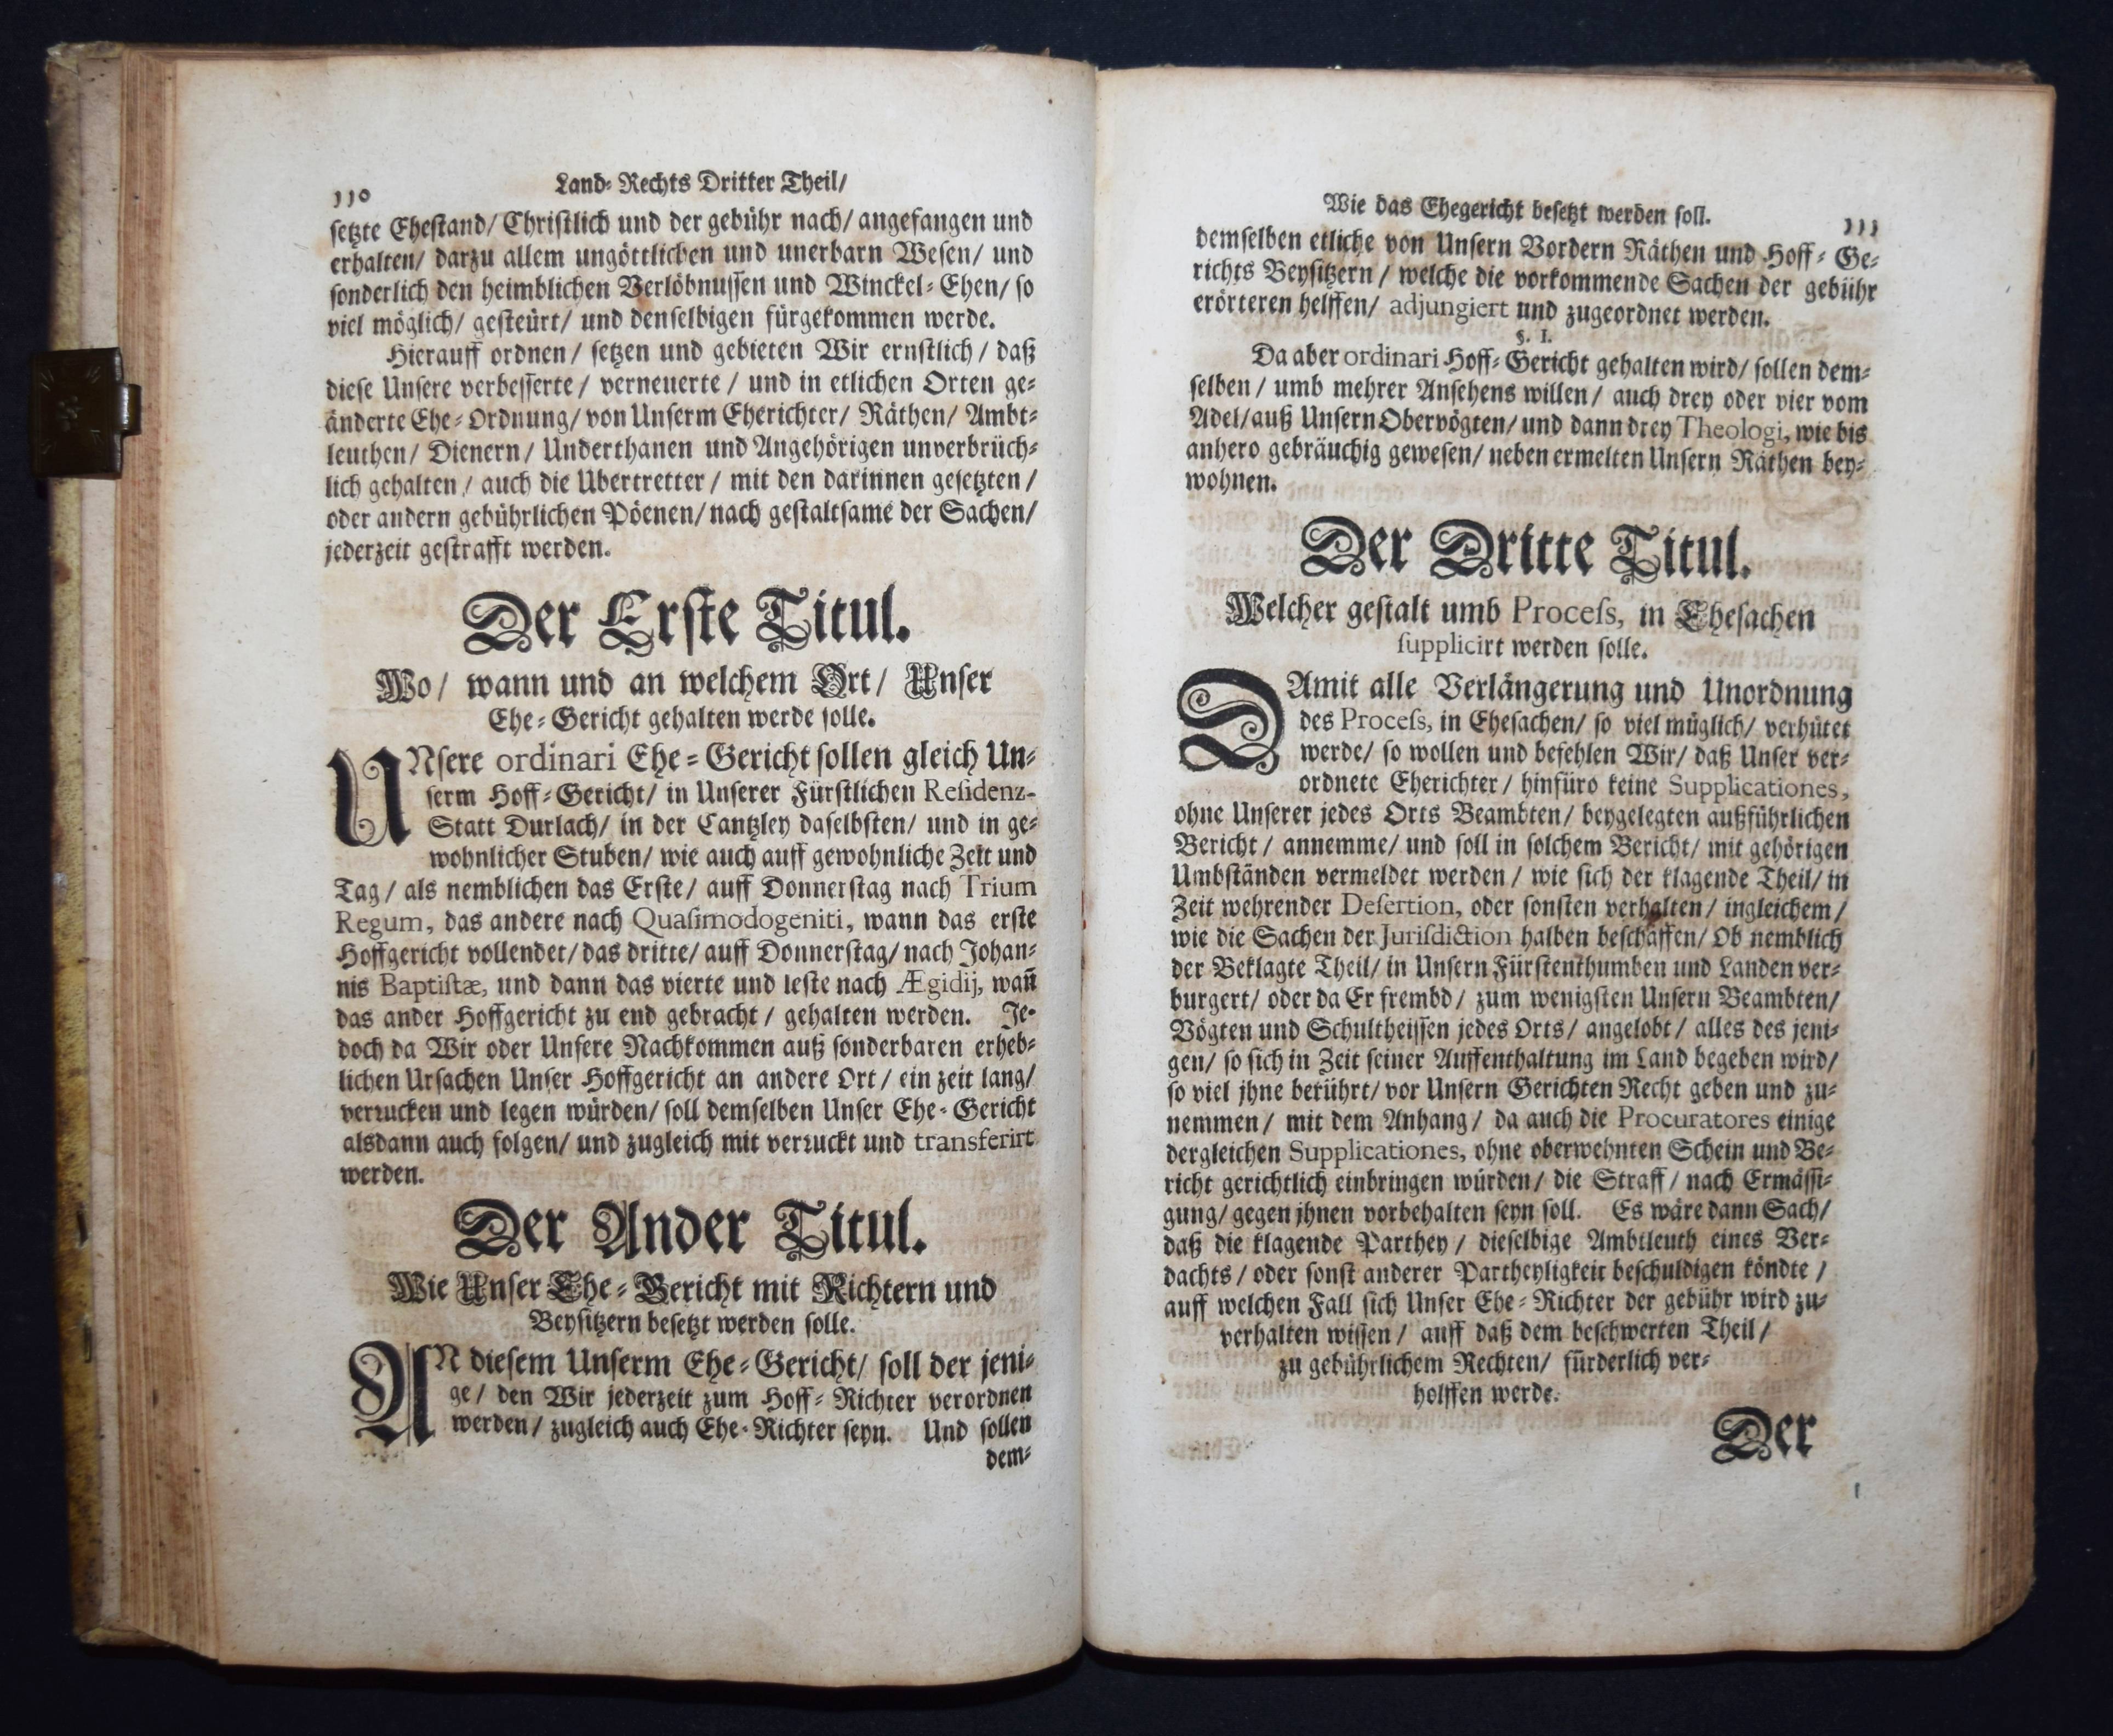 110
Land-Rechts Dritter Theil/
setzte Ehestand/ Christlich und der gebühr nach/ angefangen und
erhalten/ darzu allem ungöttlichen und unerbarn Wesen/ und
sonderlich den heimblichen Verlöbnussen und Winckel-Ehen/ so
viel möglich/ gesteürt/ und denselbigen fürgekommen werde.
Hierauff ordnen/ setzen und gebieten Wir ernstlich/ daß
diese Unsere verbesserte/ verneuerte/ und in etlichen Orten ge-
änderte Ehe-Ordnung/ von Unserm Eherichter/ Räthen/ Ambt-
leuthen/ Dienern/ Underthanen und Angehörigen unverbrüch-
lich gehalten/ auch die Ubertretter/ mit den darinnen gesetzten/
oder andern gebührlichen Pöenen/ nach gestaltsame der Sachen/
jederzeit gestrafft werden.
Der Erste Titul.
Wo/ wann und an welchem Ort/ Unser
Ehe-Gericht gehalten werde solle.
UNsere ordinari Ehe-Gericht sollen gleich Un-
serm Hoff-Gericht/ in Unserer Fürstlichen Residenz-
Statt Durlach/ in der Cantzley daselbsten/ und in ge-
wohnlicher Stuben/ wie auch auff gewohnliche Zeit und
Tag/ als nemblichen das Erste/ auff Donnerstag nach Trium
Regum, das andere nach Quasimodogeniti, wann das erste
Hoffgericht vollendet/ das dritte/ auff Donnerstag/ nach Johan-
nis Baptistæ, und dann das vierte und leste nach Ægidij, wañ
das ander Hoffgericht zu end gebracht/ gehalten werden. Je-
doch da Wir oder Unsere Nachkommen auß sonderbaren erheb-
lichen Ursachen Unser Hoffgericht an andere Ort/ ein zeit lang/
verrucken und legen würden/ soll demselben Unser Ehe-Gericht
alsdann auch folgen/ und zugleich mit verruckt und transferirt
werden.
Der Ander Titul.
Wie Unser Ehe-Gericht mit Richtern und
Beysitzern besetzt werden solle.
AN diesem Unserm Ehe-Gericht/ soll der jeni-
ge/ den Wir jederzeit zum Hoff-Richter verordnen
werden/ zugleich auch Ehe-Richter seyn. Und sollen
dem-
Wie das Ehegericht besetzt werden soll.
111
demselben etliche von Unsern Vordern Räthen und Hoff-Ge-
richts Beysitzern/ welche die vorkommende Sachen der gebühr
erörteren helffen/ adjungiert und zugeordnet werden.
§. 1.
Da aber ordinari Hoff-Gericht gehalten wird/ sollen dem-
selben/ umb mehrer Ansehens willen/ auch drey oder vier vom
Adel/ auß Unsern Obervögten/ und dann drey Theologi, wie bis
anhero gebräuchig gewesen/ neben ermelten Unsern Räthen bey-
wohnen.
Der Dritte Titul.
Welcher gestalt umb Process, in Ehesachen
supplicirt werden solle.
DAmit alle Verlängerung und Unordnung
des Process, in Ehesachen/ so viel müglich/ verhütet
werde/ so wollen und befehlen Wir/ daß Unser ver-
ordnete Eherichter/ hinfüro keine Supplicationes,
ohne Unserer jedes Orts Beambten/ beygelegten außführlichen
Bericht/ annemme/ und soll in solchem Bericht/ mit gehörigen
Umbständen vermeldet werden/ wie sich der klagende Theil/ in
Zeit wehrender Desertion, oder sonsten verhalten/ ingleichem/
wie die Sachen der Jurisdiction halben beschaffen/ Ob nemblich
der Beklagte Theil/ in Unsern Fürstenthumben und Landen ver-
burgert/ oder da Er frembd/ zum wenigsten Unsern Beambten/
Vögten und Schultheissen jedes Orts/ angelobt/ alles des jeni-
gen/ so sich in Zeit seiner Auffenthaltung im Land begeben wird/
so viel jhne berührt/ vor Unsern Gerichten Recht geben und zu-
nemmen/ mit dem Anhang/ da auch die Procuratores einige
dergleichen Supplicationes, ohne oberwehnten Schein und Be-
richt gerichtlich einbringen würden/ die Straff/ nach Ermässi-
gung/ gegen jhnen vorbehalten seyn soll. Es wäre dann Sach/
daß die klagende Parthey/ dieselbige Ambtleuth eines Ver-
dachts/ oder sonst anderer Partheyligkeit beschuldigen köndte/
auff welchen Fall sich Unser Ehe-Richter der gebühr wird zu-
verhalten wissen/ auff daß dem beschwerten Theil/
zu gebührlichem Rechten/ fürderlich ver-
holffen werde.
Der